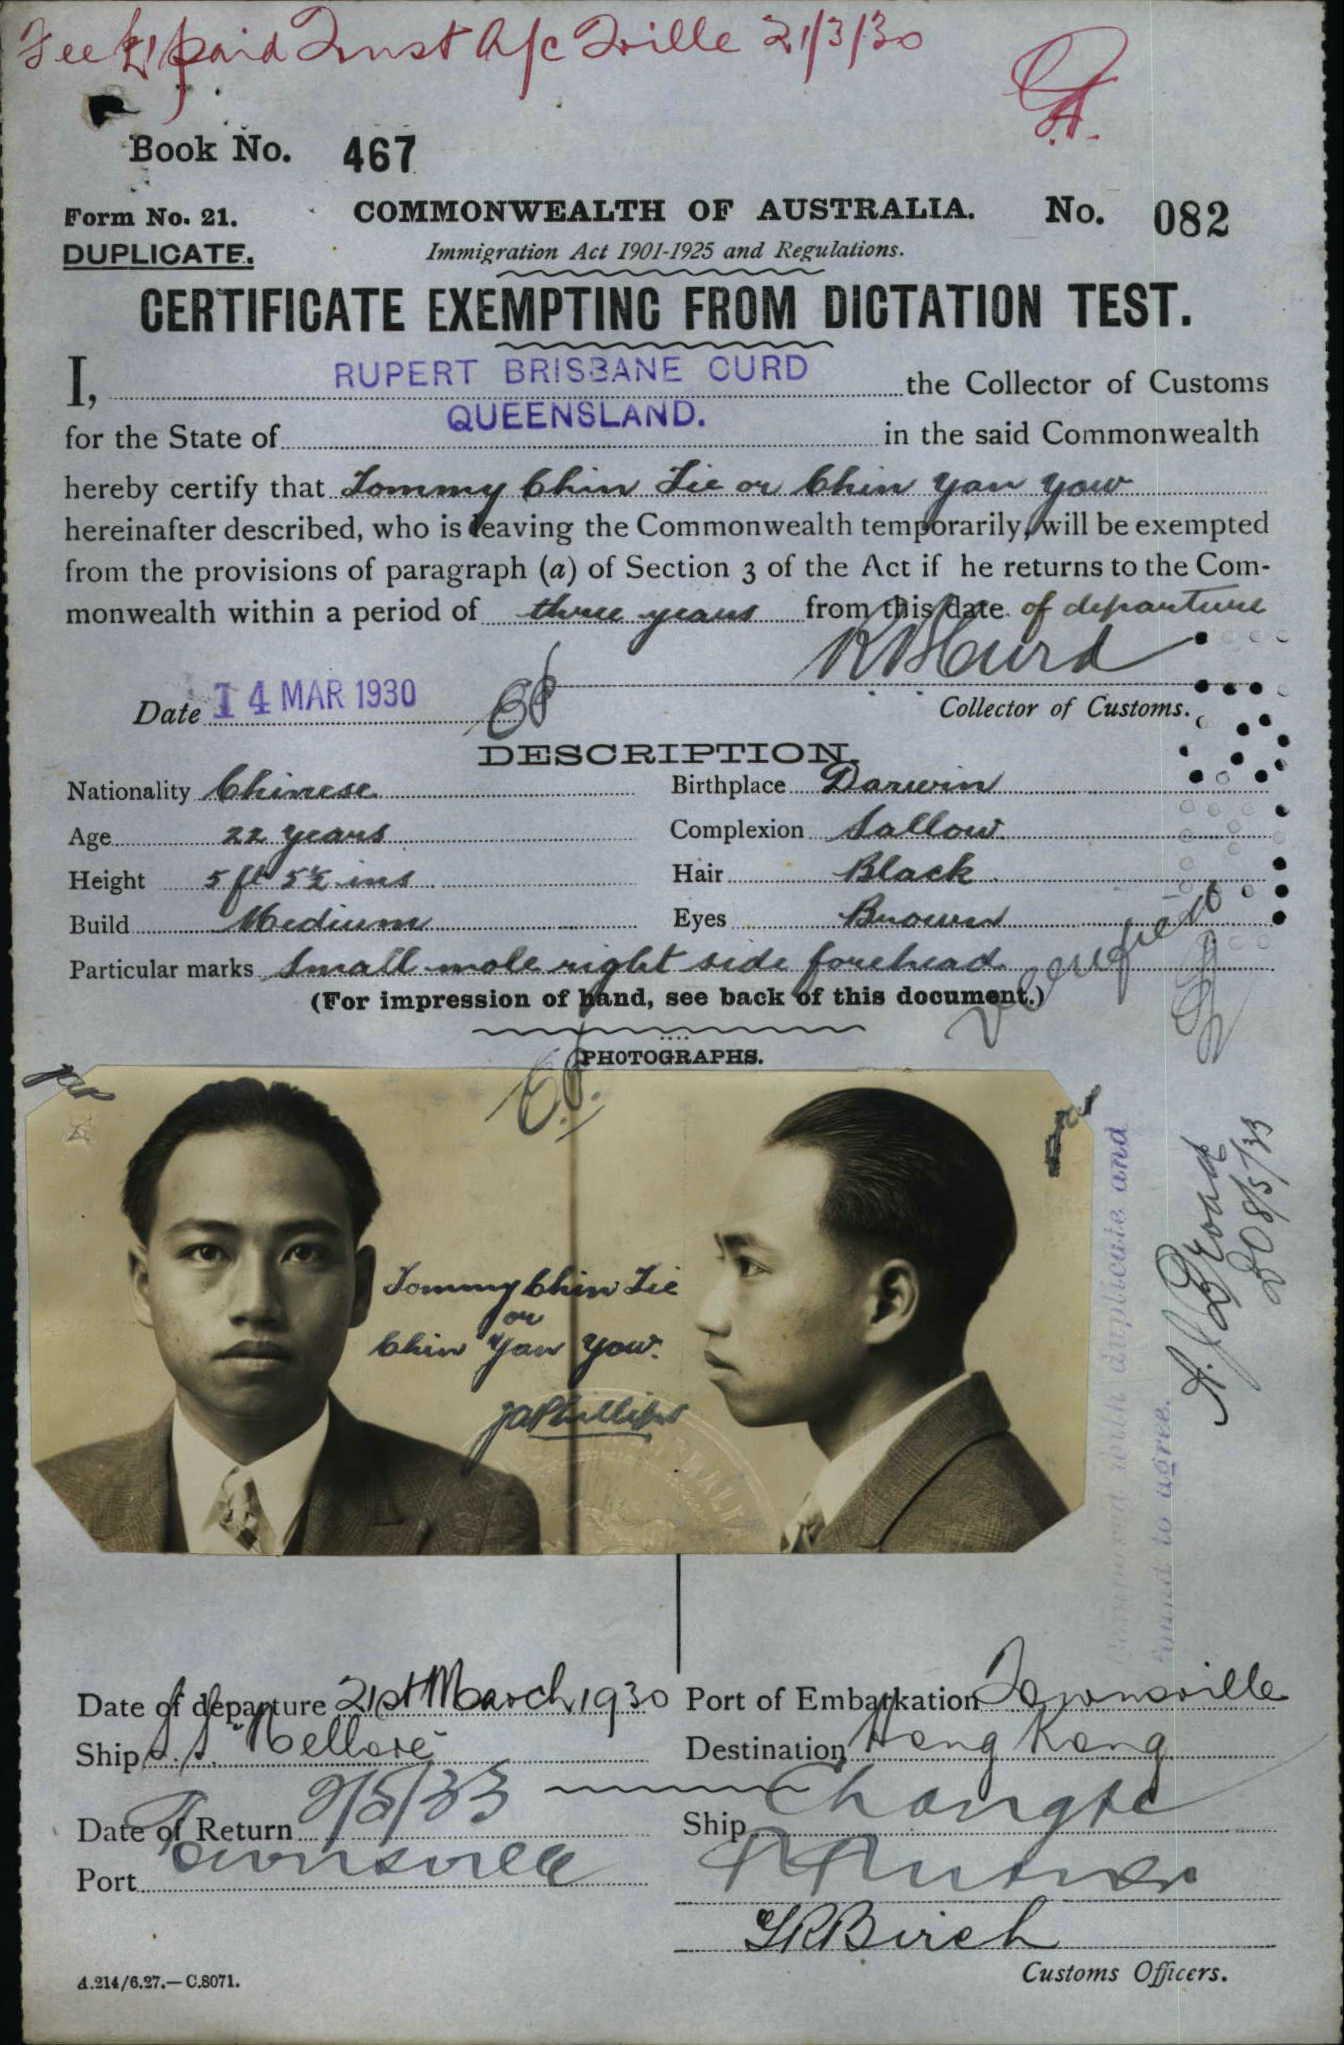 Fee £1 paid Trust A/c Tville 21/3/30
Book No. 467
Form No. 21.
COMMONWEALTH OF AUSTRALIA.
No. 082
DUPLICATE.
Immigration Act 1901-1925 and Regulations.
CERTIFICATE EXEMPTING FROM DICTATION TEST.
I, RUPERT BRISBANE CURD the Collector of Customs
for the State of QUEENSLAND. in the said Commonwealth
hereby certify that Tommy Chin Tie or Chin Yan Yow
hereinafter described, who is leaving the Commonwealth temporarily, will be exempted
from the provisions of paragraph (a) of Section 3 of the Act if he returns to the Com-
monwealth within a period of three years from this date of departure
R B Curd
Date 14 MAR 1930
Collector of Customs.
DESCRIPTION.
Nationality Chinese Birthplace Darwin
Age 22 years Complexion Sallow
Height 5 ft 5½ ins Hair Black
Build Medium Eyes Brown
Particular marks Small mole right side forehead
(For impression of hand, see back of this document.)
PHOTOGRAPHS.
Tommy Chin Tie
or
Chin Yan Yow.
JAPhillips
duplicate and
to agree.
8/5/33
Date of departure 21st March 1930 Port of Embarkation Townsville
Ship S.S. "Nellore" Destination Hong Kong
Date of Return 9/5/33 Ship Changte
Port Townsville
Birch
Customs Officers.
A.214/6.27.—C.8071.